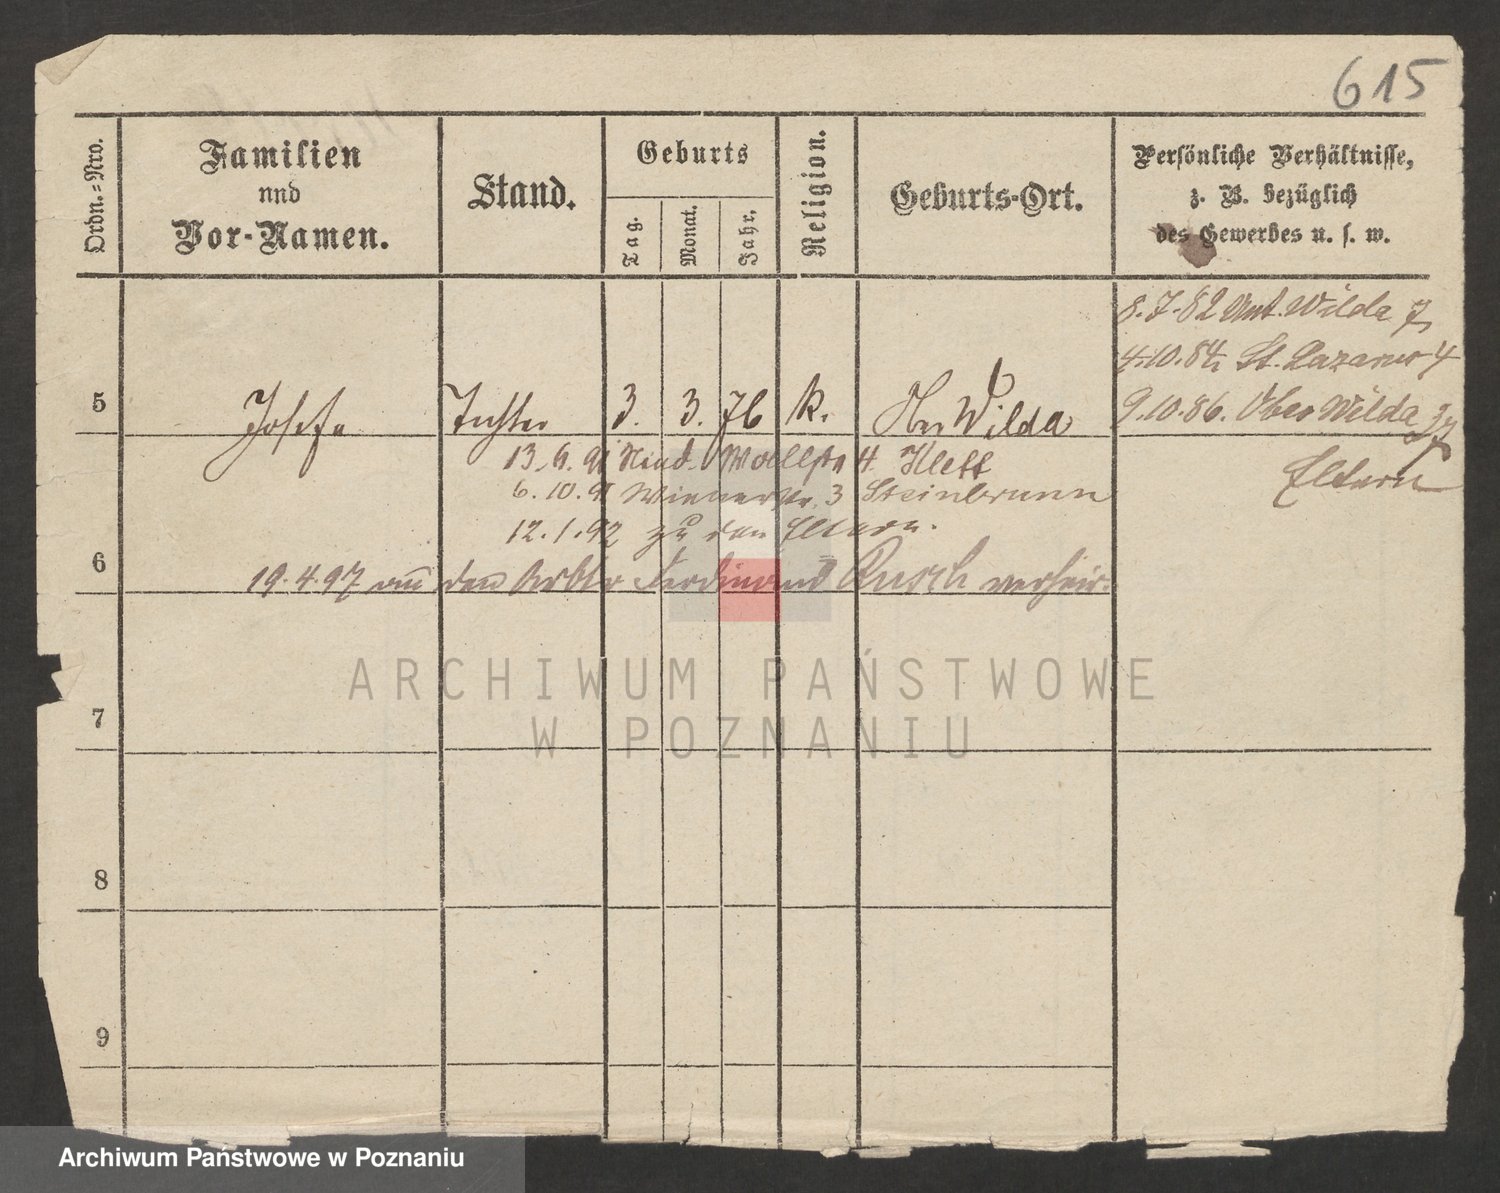 615
Ordn.-Nro.
Familien
und
Vor-Namen.
Stand.
Geburts
Tag.
Monat.
Jahr.
Religion.
Geburts-Ort.
Persönliche Verhältnisse,
z. B. bezüglich
des Gewerbes u. s. w.
8.7.82 Unt. Wilda 7
4.10.84 St. Lazarus 4
5 Josefa Tochter 3. 3. 76 k. Wilda
9.10.86. Ober Wilda
13. 91 4. Kleff
Eltern
6.10.91 Wienerstr. 3 Steinbrunn
12.1.92 zu den Eltern.
6
19.4.97 an den Arbtr Ferdinand Rusch verheir.
ARCHIWUM PAŃSTWOWE
W POZNANIU
7
8
9
Archiwum Państwowe w Poznaniu